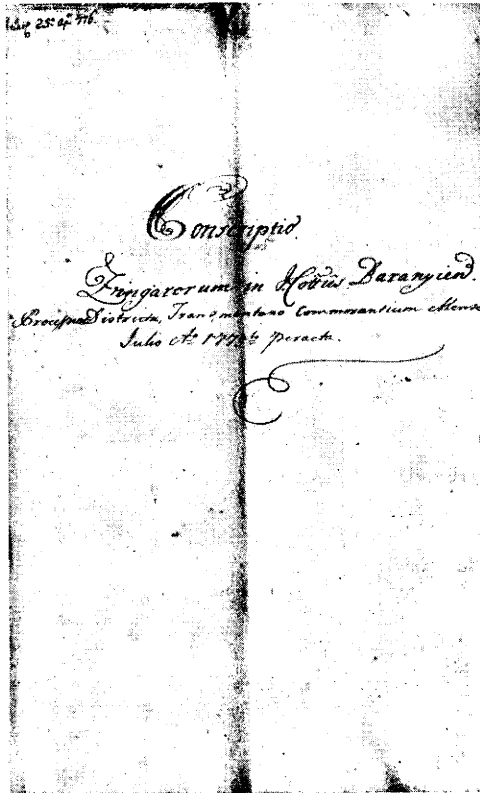 25ᵃ ap. 776.
Conscriptio
Zingarorum in Cottus Baranyien.
Districtu, Transmontano Commorantium Mense
Julio Aº 1775ᵗᵒ peracta.